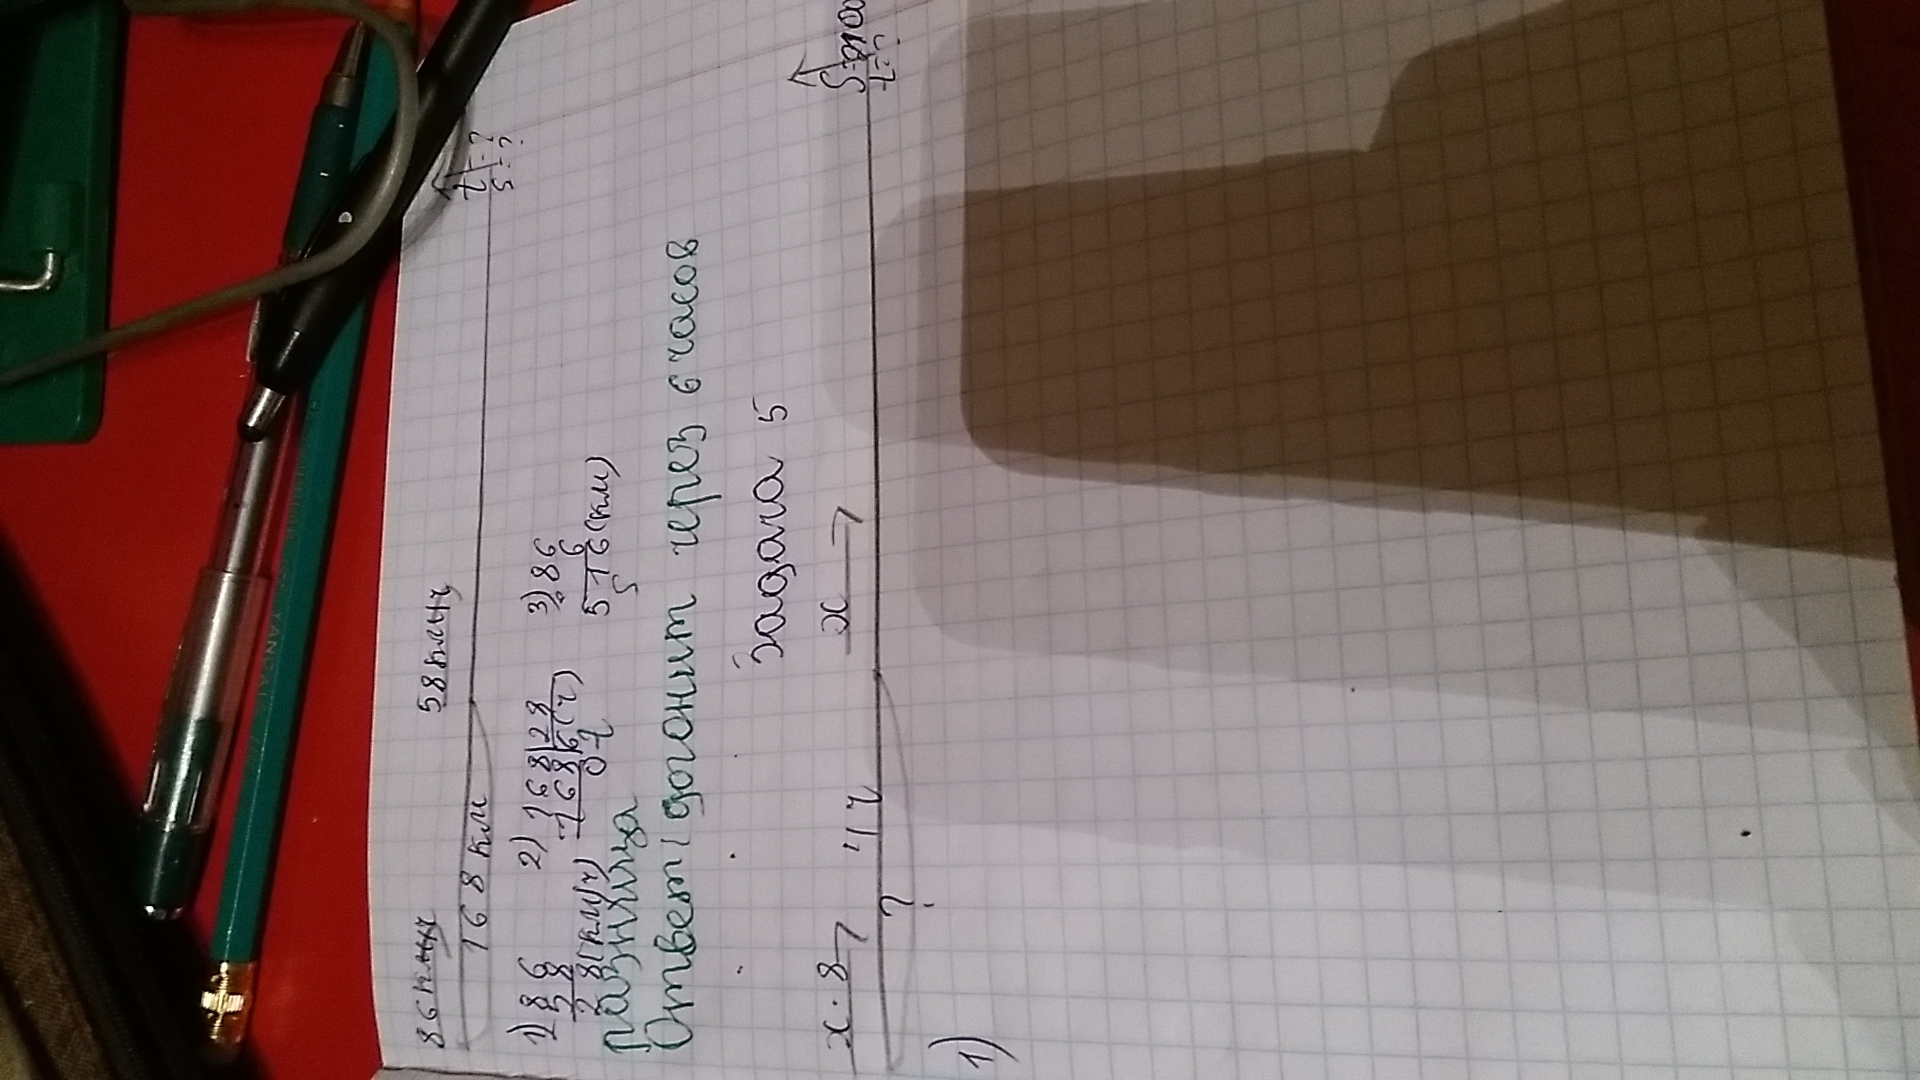 86км/ч 58км/ч
168 км
t-?
S-?
1) 86
58
28(км/ч)
2) 168|28
168|6(ч)
0
3) 86
6
516(км)
Разница
Ответ: догонит через 6 часов
Задача 5
x·8 x
4ч
?
t-?
1)